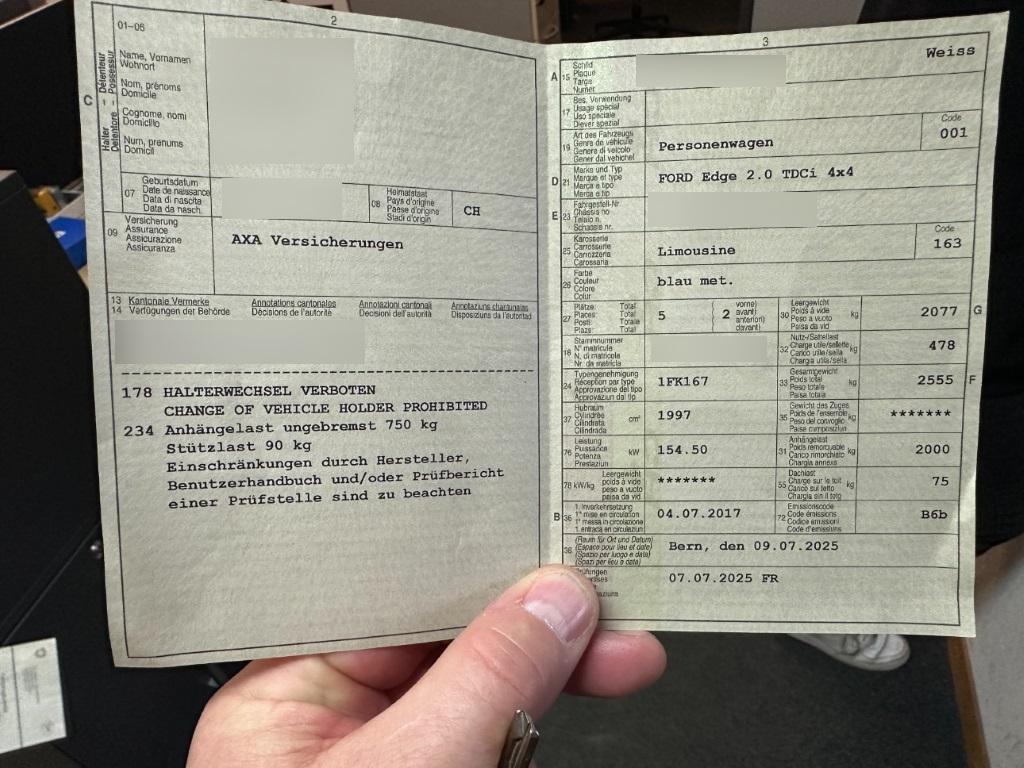 2
01-06
C
Halter Détenteur
Detentore Possessur
Name, Vornamen
Wohnort
Nom, prénoms
Domicile
Cognome, nomi
Domicilio
Num, prenums
Domicil
07
Geburtsdatum
Date de naissance
Data di nascita
Data da nasch.
08
Heimatstaat
Pays d'origine
Paese d'origine
Stadi d'origin
CH
09
Versicherung
Assurance
Assicurazione
Assicuranza
AXA Versicherungen
13 Kantonale Vermerke Annotations cantonales Annotazioni cantonali Annotaziuns chantunalas
14 Verfügungen der Behörde Décisions de l'autorité Decisioni dell'autorità Disposiziuns da l'autoritad
178 HALTERWECHSEL VERBOTEN
CHANGE OF VEHICLE HOLDER PROHIBITED
234 Anhängelast ungebremst 750 kg
Stützlast 90 kg
Einschränkungen durch Hersteller,
Benutzerhandbuch und/oder Prüfbericht
einer Prüfstelle sind zu beachten
3
A 15
Schild
Plaque
Targa
Numer
Weiss
17
Bes. Verwendung
Usage spécial
Uso speciale
Diever spezial
19
Art des Fahrzeugs
Genre de véhicule
Genere di veicolo
Gener dal vehichel
Personenwagen
Code
001
D 21
Marke und Typ
Marque et type
Marca e tipo
Marca e tip
FORD Edge 2.0 TDCi 4x4
E 23
Fahrgestell-Nr
Châssis no
Telaio n.
Schassis nr.
25
Karosserie
Carrosserie
Carrozzeria
Carossaria
Limousine
Code
163
26
Farbe
Couleur
Colore
Colur
blau met.
27
Plätze: Total
Places: Total
Posti: Totale
Plazs: Total
5
( 2
vorne)
avant)
anteriori)
davant)
30
Leergewicht
Poids à vide
Peso a vuoto
Paisa da vid
kg
2077
G
18
Stammnummer
N° matricule
N. di matricola
Nr. da matricla
32
Nutz-/Sattellast
Charge utile/sellette
Carico utile/sella
Chargia utila/sella
kg
478
24
Typengenehmigung
Réception par type
Approvazione del tipo
Approvaziun dal tip
1FK167
33
Gesamtgewicht
Poids total
Peso totale
Paisa totala
kg
2555
F
37
Hubraum
Cylindrée
Cilindrata
Cilindrada
cm³
1997
35
Gewicht des Zuges
Poids de l'ensemble
Peso del convoglio
Paisa cumposiziun
kg
*******
76
Leistung
Puissance
Potenza
Prestaziun
kW
154.50
31
Anhängelast
Poids remorquable
Carico rimorchiato
Chargia annexa
kg
2000
78 kW/kg
Leergewicht
poids à vide
peso a vuoto
paisa da vid
*******
55
Dachlast
Charge sur le toit
Carico sul tetto
Chargia sin il tetg
kg
75
B 36
1. Inverkehrsetzung
1re mise en circulation
1a messa in circolazione
1. entrada en circulaziun
04.07.2017
72
Emissionscode
Code émissions
Codice emissioni
Code d'emissiuns
B6b
38
(Raum für Ort und Datum)
(Espace pour lieu et date)
(Spazio per luogo e data)
(Spazi per lieu e data)
Bern, den 09.07.2025
Prüfungen
07.07.2025 FR